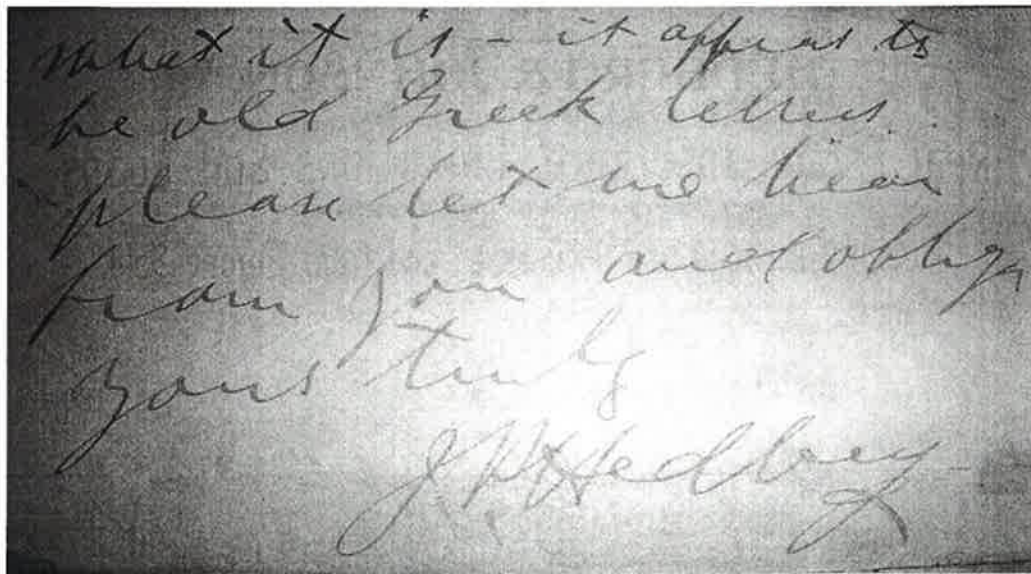 what it is - it appears to
be old Greek letters.
please let me hear
from you and oblige
yours truly
J P Hedberg